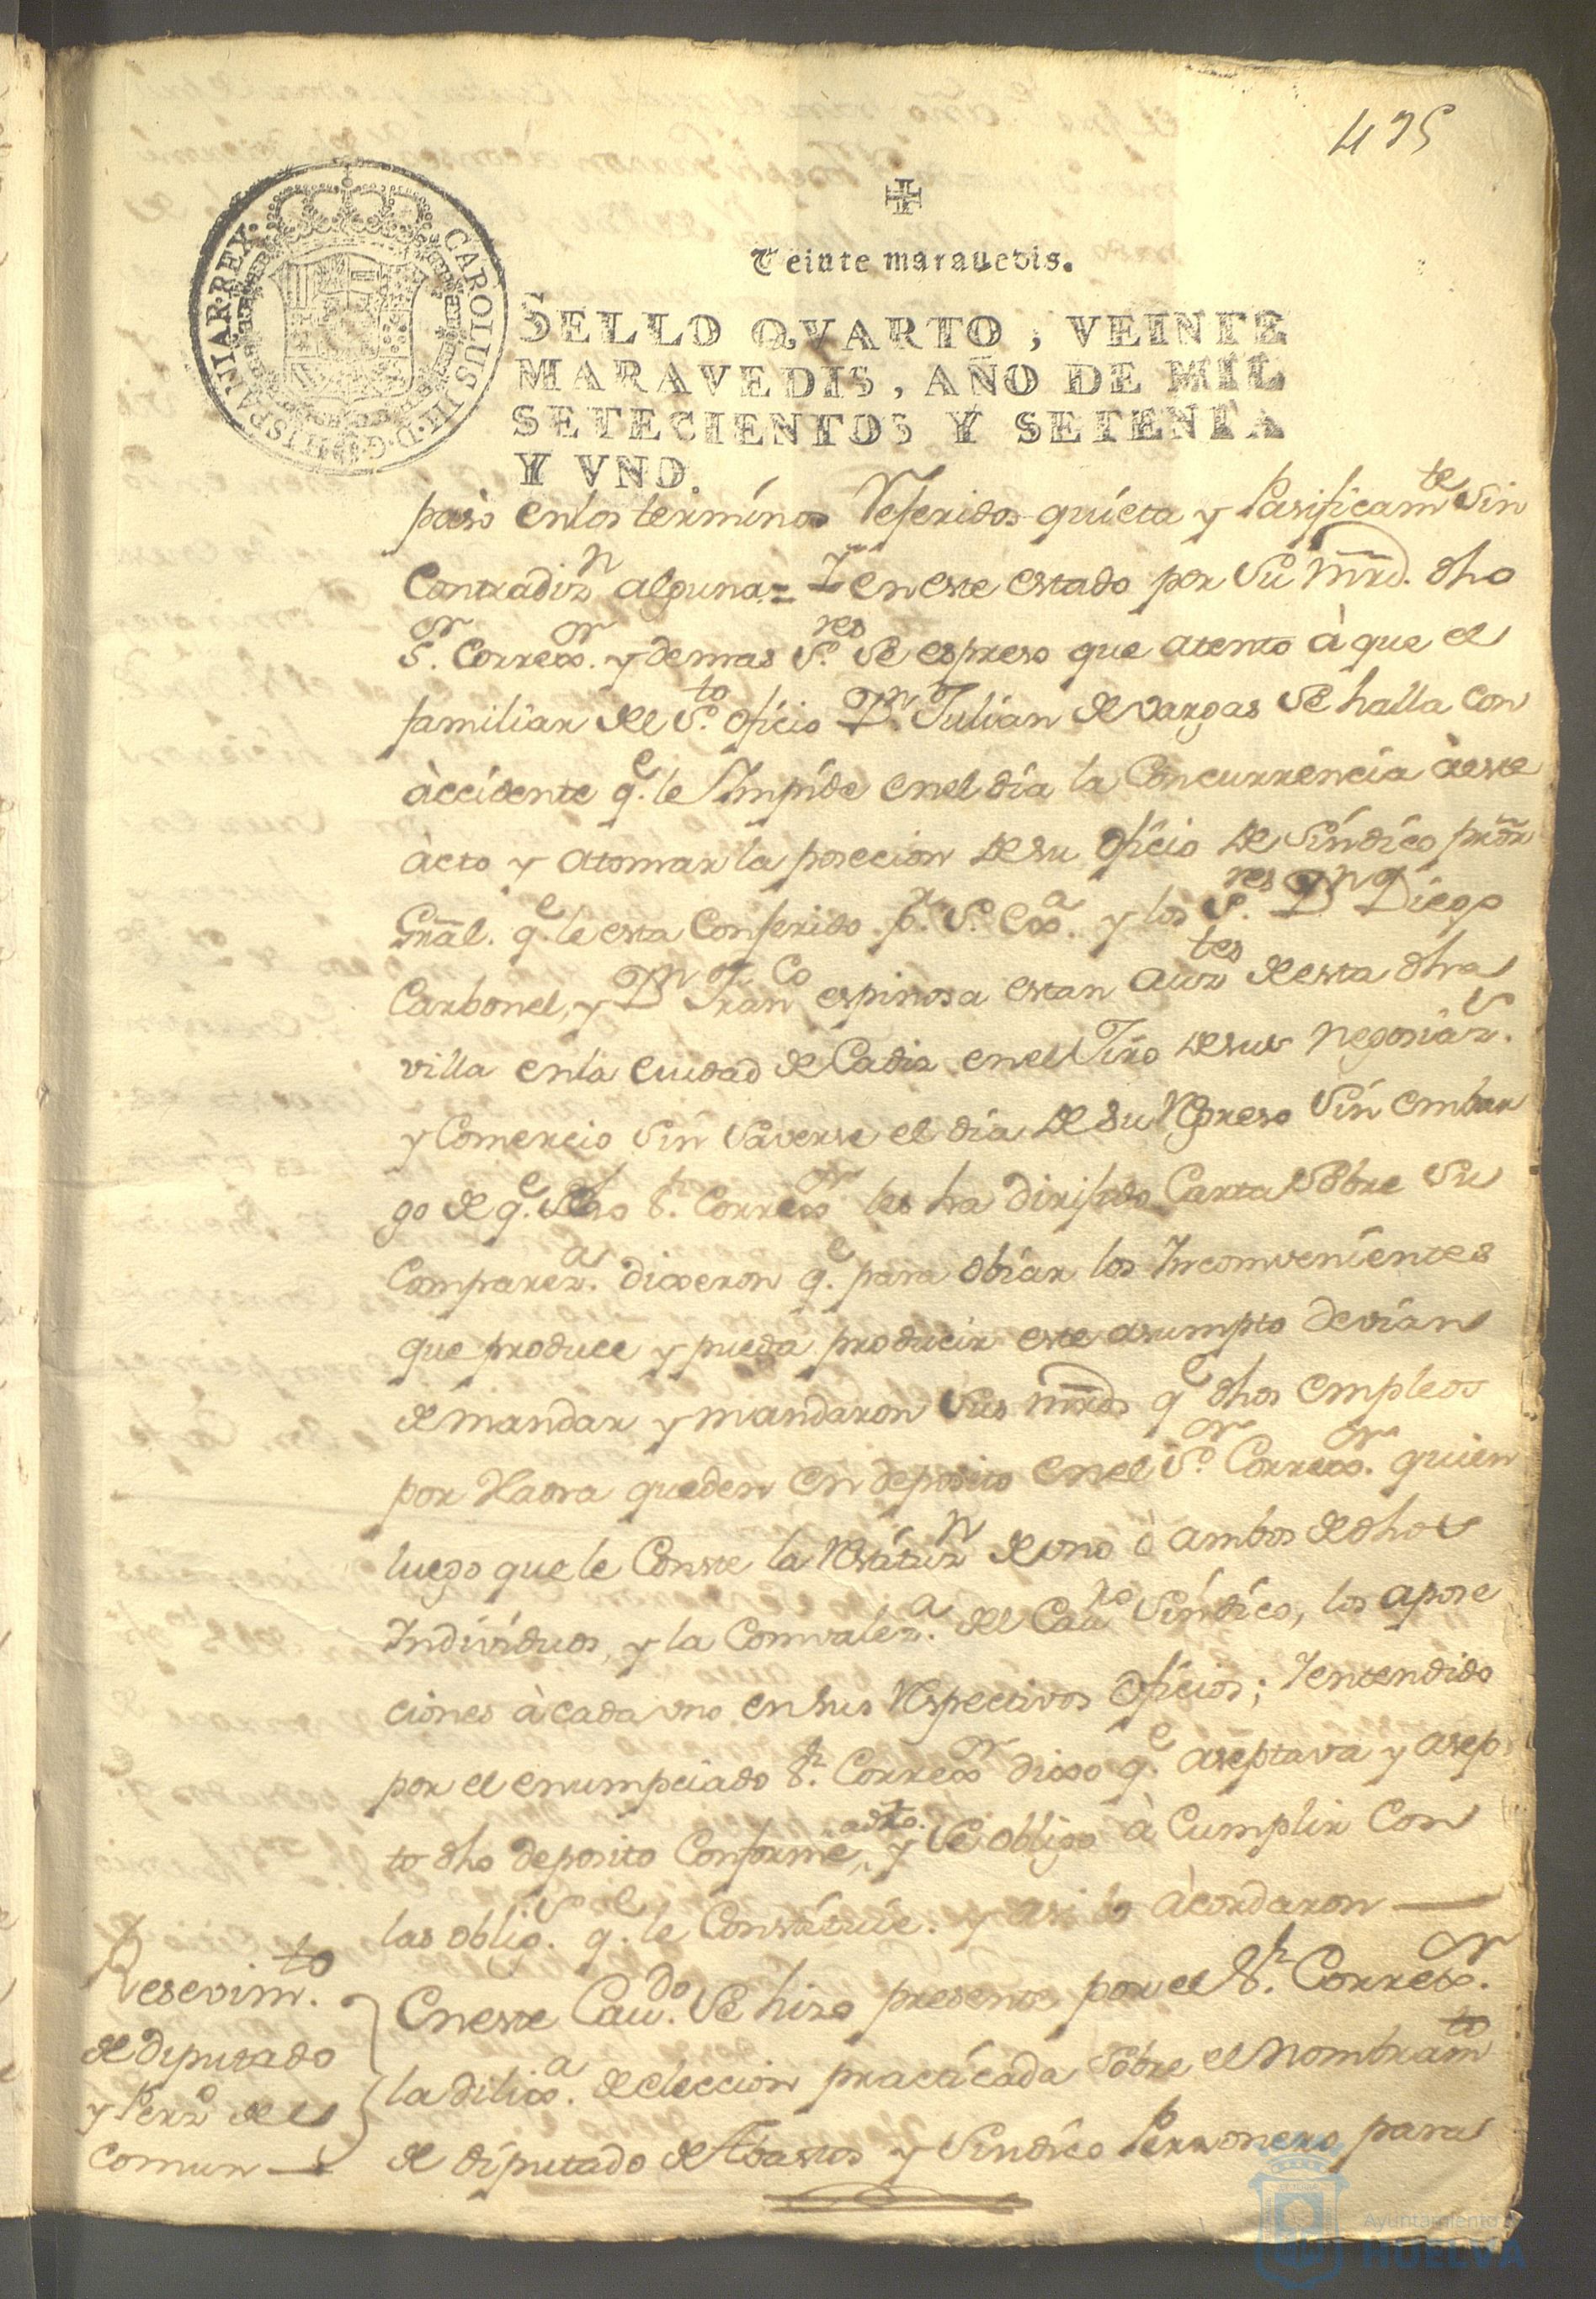 475
Veinte marauedis.
CAROLUS III. D. G. HISPANIAR. REX.
SELLO QVARTO, VEINTE
MARAVEDIS, AÑO DE MIL
SETECIENTOS Y SETENTA
Y VNO.
paso en los terminos Referidos quieta y Pasificamte sin
Contradizn alguna = Y en este estado por Su Mrd. dho
Sor. Correxor. y demas Sres. Se espreso que atento à que el
familiar del Sto. oficio Dn. Julian de Vargas Se halla con
àccidente qe. le Impide en el dia la Concurrencia à este
àcto y atomar la posecion de su oficio de Sindico prór
Grãl. qe. le esta Conferido pr. S. Exa. y los Sres. Dn Diego
Carbonel, y Dn Franco espinosa estan auztes de esta dha
villa en la Ciudad de Cadiz en el Jiro de sus negosiazs.
y Comercio Sin Saverse el dia de Su Regreso Sin embar
go de qe. dho Sr. Correxor les ha dirijido Carta Sobre Su
Compareza. dixeron qe. para obiar los Inconvenientes
que produce y pueda producir este asumpto devian
de mandar y mandaron Sus mrds qe dhos empleos
por Haora queden en deposito en el Sor. Correxor. quien
luego que le Conste la Restituzn de uno ò ambos de dhos
Individuos, y la Comvaleza. del Cauro Sindico, los apose
ciones à cada uno en sus Respectivos oficios; Y entendido
por el enumpciado Sr. Correxor dixo qe. aseptava y asep
to dho deposito Conforme a dro. y Se obligo à Cumplir Con
las obligs. qe. le Constituie. y asi lo àcordaron —
Resevimto.
de diputado
y Perzo del
Comun —
En este Caudo. Se hizo presente por el Sr. Correxor.
la dilixa. de eleccion practicada Sobre el Nombramto
de diputado de Abastos y Sindico Perzonero para
Ayuntamiento
HUELVA